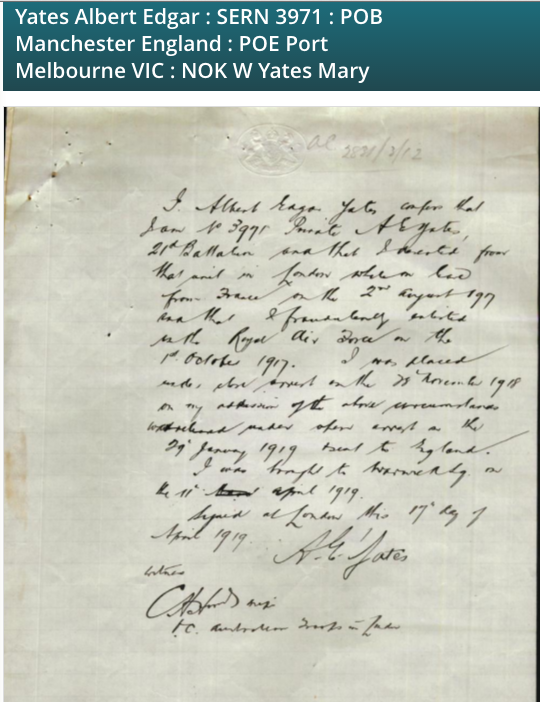 Yates Albert Edgar : SERN 3971 : POB
Manchester England : POE Port
Melbourne VIC : NOK W Yates Mary
2821/3/12
I. Albert Edgar Yates confess that
I am No 3971 Private A E Yates,
21st Battalion and that I deserted from
that unit in London while on
from France on the 2nd August 1917
and that I fraudulently enlisted
in the Royal Air Force on the
1st October 1917. I was placed
under close arrest on the November 1918
on my admission of the above circumstances
released under open arrest on the
29 January 1919 & sent to England.
I was brought to on
the 11th April 1919.
Signed at London this 17th day of
April 1919.
A.E. Yates
witness
Australian Troops in